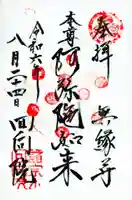 奉拝
無縁寺
本尊阿弥陀如来
令和六年
八月二十四日
回向院